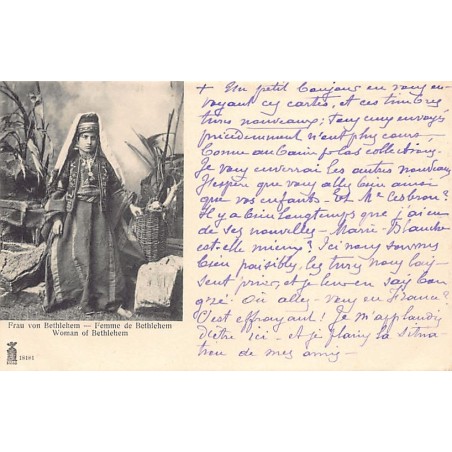 + Un petit bonjour en vous en-
voyant ces cartes, et ces timbres
turcs nouveaux; tous ceux envoyés
précédemment n'ont plus cours.
Conne au Caïn folas collections.
Je vous enverrai les autres nouveaux
J'espère que vous allez bien ainsi
que vos enfants - Et Me Lesbrou?
Il y a bien longtemps que j'ai eu
de ses nouvelles - Marie-Blanche
est-elle mieux? Ici nous sommes
bien paisibles, les turcs nous lais-
sent prier, et je leur en sais bon
gré! Où allez-vous en France?
C'est effrayant! Je m'applaudis
d'être ici - et je plains la situa-
tion de mes amis -
Frau von Bethlehem — Femme de Bethlehem
Woman of Bethlehem
18101